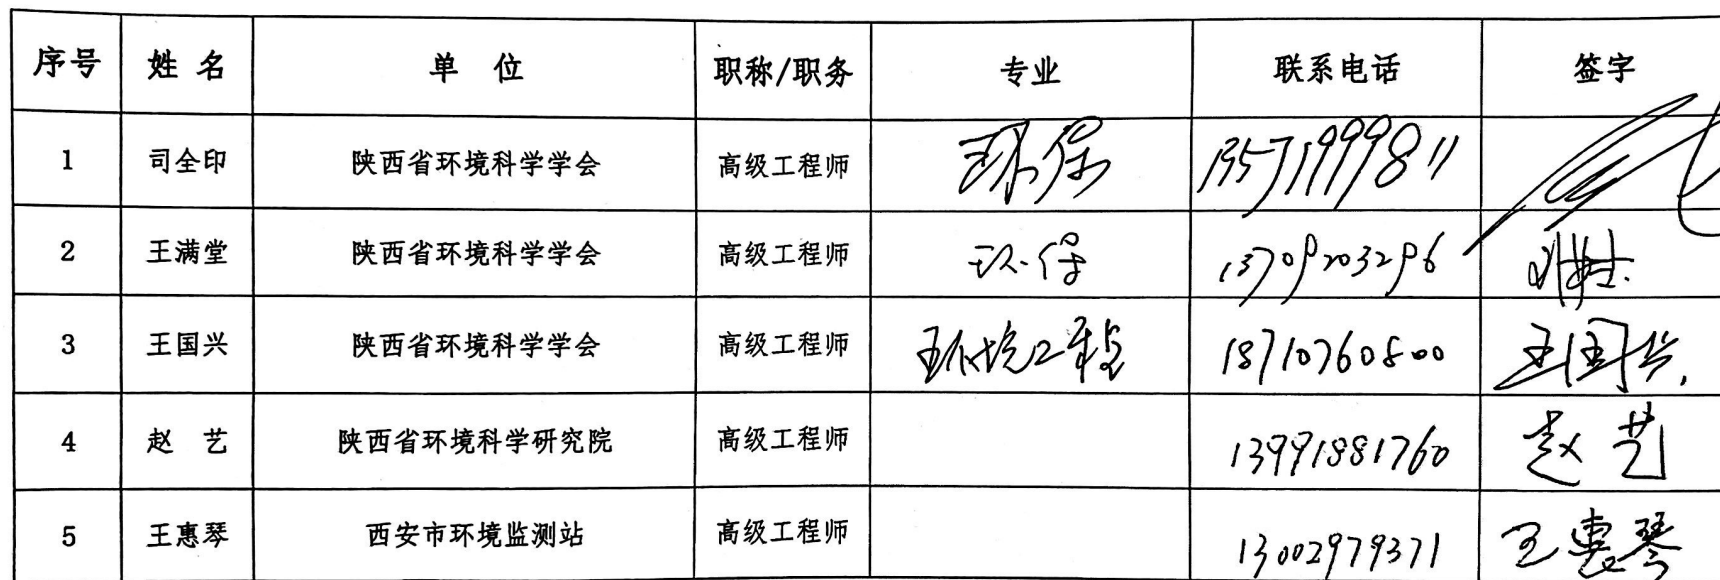 序号 姓名 单位 职称/职务 专业 联系电话 签字
1 司全印 陕西省环境科学学会 高级工程师 环保 13571999811
2 王满堂 陕西省环境科学学会 高级工程师 环保 13709203296
3 王国兴 陕西省环境科学学会 高级工程师 环境工程 18710760800 王国兴
4 赵艺 陕西省环境科学研究院 高级工程师 13991881760 赵艺
5 王惠琴 西安市环境监测站 高级工程师 13002979371 王惠琴